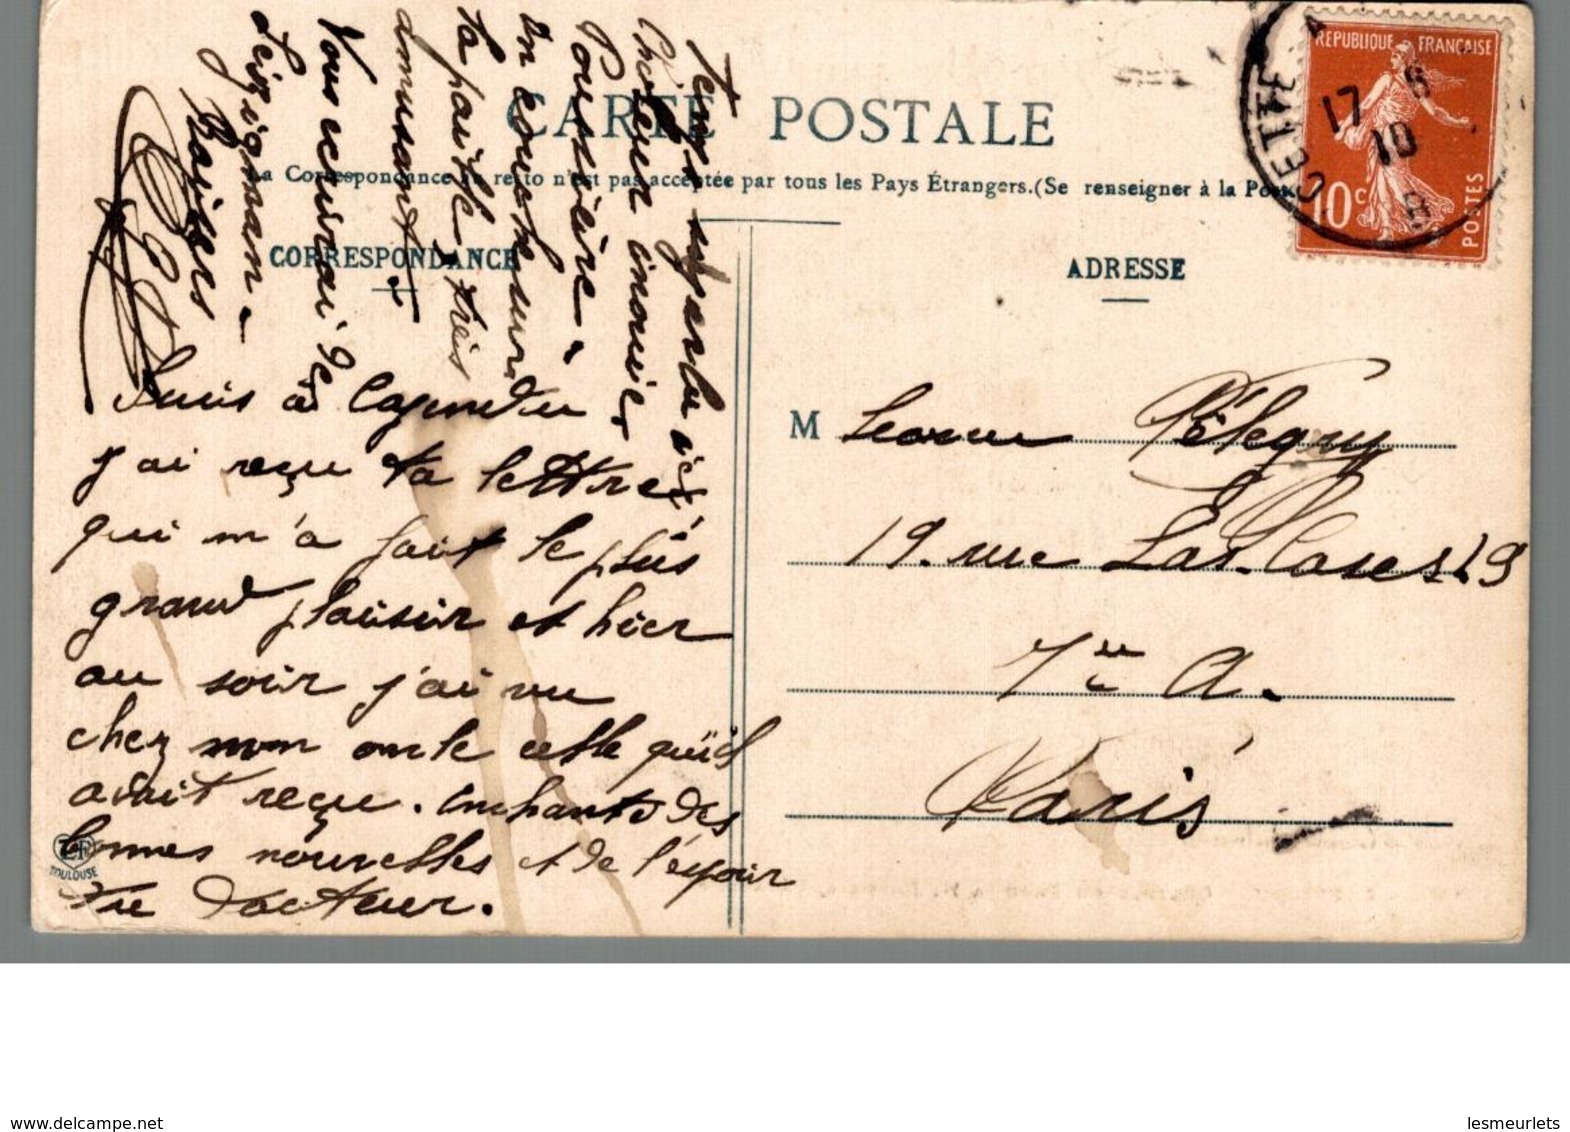 CARTE POSTALE
La Correspondance au recto n'est pas acceptée par tous les Pays Étrangers. (Se renseigner à la Poste)
CORRESPONDANCE
ADRESSE
REPUBLIQUE FRANÇAISE
10c
POSTES
CETTE
17 8
10
Suis à
j'ai reçu ta lettre
qui m'a fait le plus
grand plaisir et hier
au soir j'ai vu
chez mon oncle celle qu'il
avait reçu. Enchanté des
bonnes nouvelles et de l'espoir
du docteur.
Temps superbe ici
Chaleur inouie
Poussière.
On couche sur
la paille très
amusant.
Vous écrirai de
Lézignan.
Baisers
M
19. rue Las-Cases 19
7e A.
Paris
TOULOUSE
delcampe.net
lesmeurlets